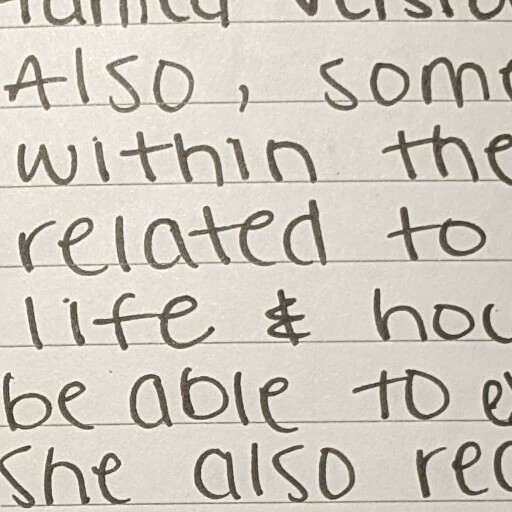 Also, some
within the
related to
life & how
be able to
she also